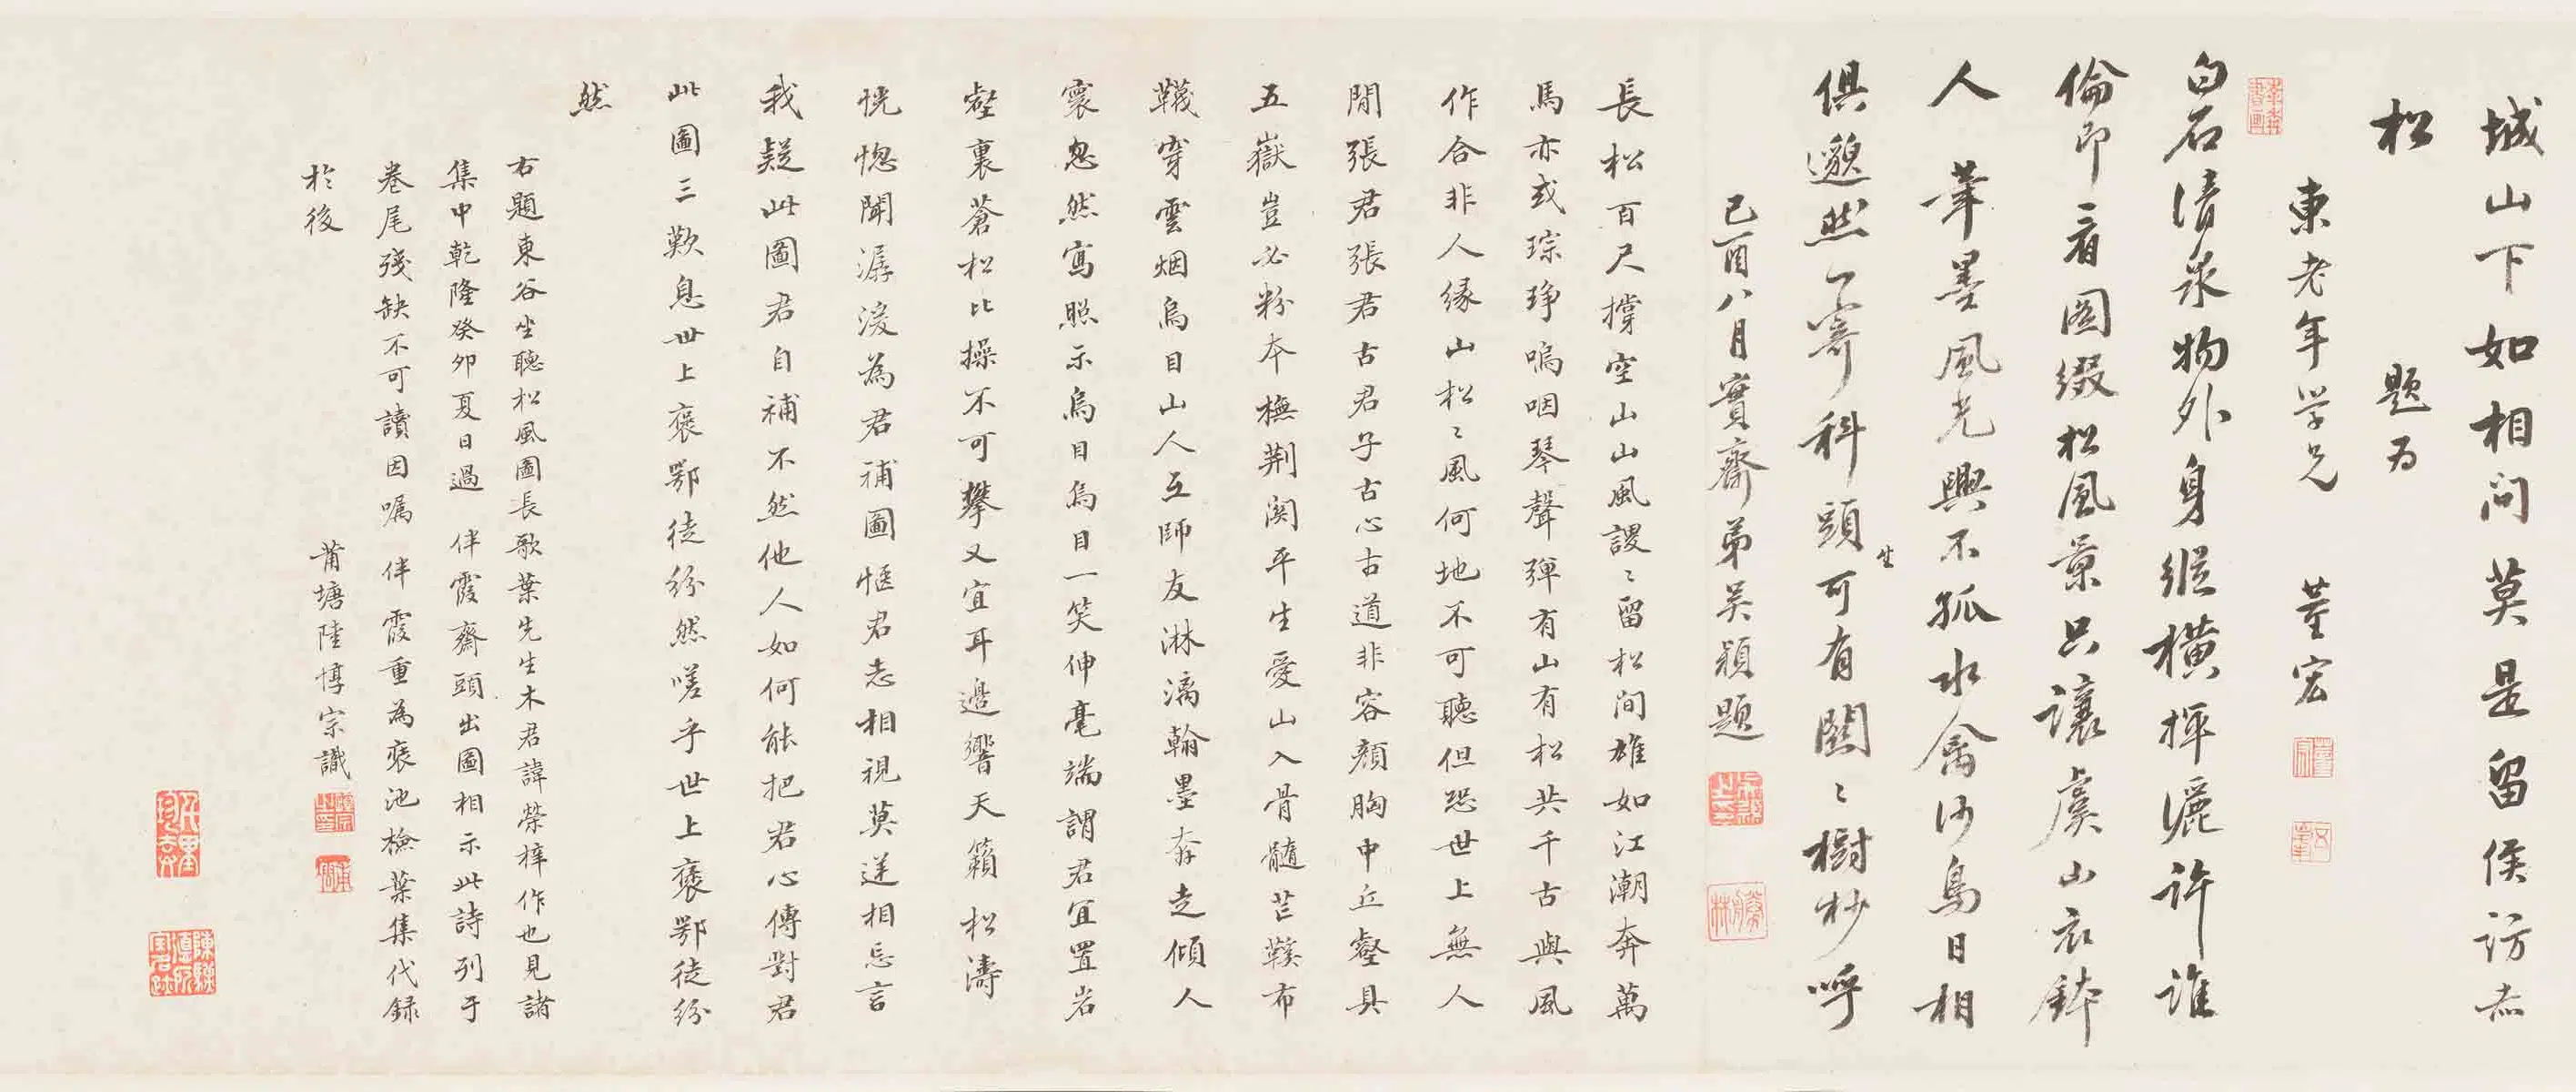 城山下如相问莫是留侯访赤
松
题为
東老年学兄 董宏
白石清泉物外身縱橫揮灑许誰
倫即看图缀松風景只讓虞山衣鉢
人 筆墨風光興不孤水禽沙鳥日相
俱邈然一寄科頭生可有關〻樹杪呼
己酉八月實齋弟吴潁題
長松百尺撑空山山風謖〻留松间雄如江潮奔萬
馬亦或琮琤嗚咽琴聲彈有山有松共千古與風
作合非人缘山松〻風何地不可聽但恐世上無人
閒張君張君古君子古心古道非容顏胸中丘壑具
五嶽豈必粉本橅荆関平生愛山入骨髓芒鞵布
韈穿雲烟烏目山人互師友淋漓翰墨奔走傾人
寰忽然寫照示烏目烏目一笑伸毫端謂君宜置岩
壑裏蒼松比操不可攀又宜耳邉響天籟松濤
恍惚聞潺湲為君補圖愜君志相視莫逆相忘言
我疑此圖君自補不然他人如何能把君心傳對君
此圖三歎息世上褒鄂徒紛然嗟乎世上褒鄂徒紛
然
右題東谷坐聽松風圖長歌葉先生木君諱榮梓作也見諸
集中乾隆癸卯夏日過 伴霞齋頭出圖相示此詩列于
卷尾殘缺不可讀因嘱 伴霞重為裝池檢葉集代録
於後
莆塘陸惇宗識